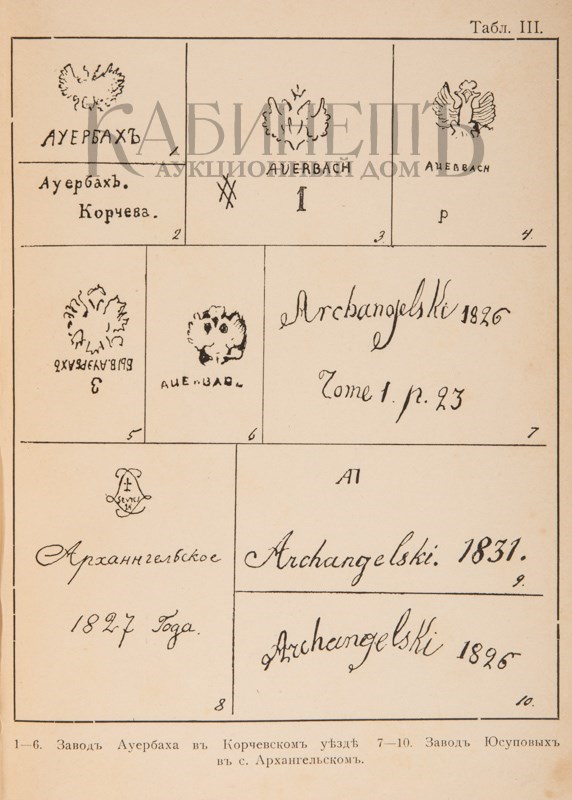 Табл. III.
КАБИНЕТЪ
АУКЦИОННЫЙ ДОМ
АУЕРБАХЪ
1
Ауербахъ.
Корчева.
2
AUERBACH
1
3.
AUERBACH
P
4.
3
5
6
Archangelski 1826
Tome 1. p. 23
7
Архангельское
1827 Года.
8
АП
Archangelski. 1831.
9.
Archangelski 1826
10.
1—6. Заводъ Ауербаха въ Корчевскомъ уѣздѣ 7—10. Заводъ Юсуповыхъ
въ с. Архангельскомъ.